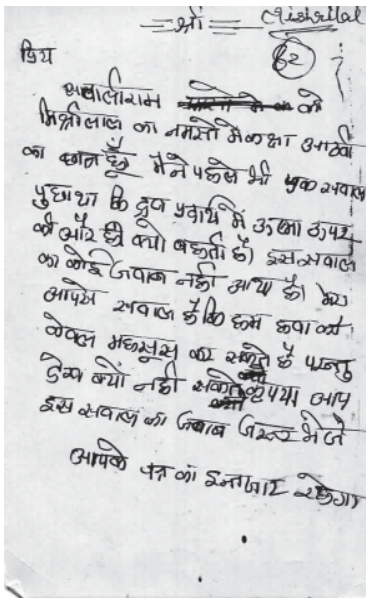 श्री Mishrilal
62
प्रिय
सवालीराम को
मिश्रीलाल का नमस्ते मै कक्षा आठवी
का छात्र हूँ मैने पहले भी एक सवाल
पुछा था कि द्रव पदार्थ में ऊष्मा ऊपर
की और ही क्यो बहती है। इस सवाल
का कोई जवाब नही आया है। मेरा
आपसे सवाल है कि हम हवा को
केवल महसूस कर सकते है परन्तु
देख क्यों नही सकते कृपया आप
इस सवाल का जवाब जरूर भेजे
आपके पत्र का इन्तजार रहेगा